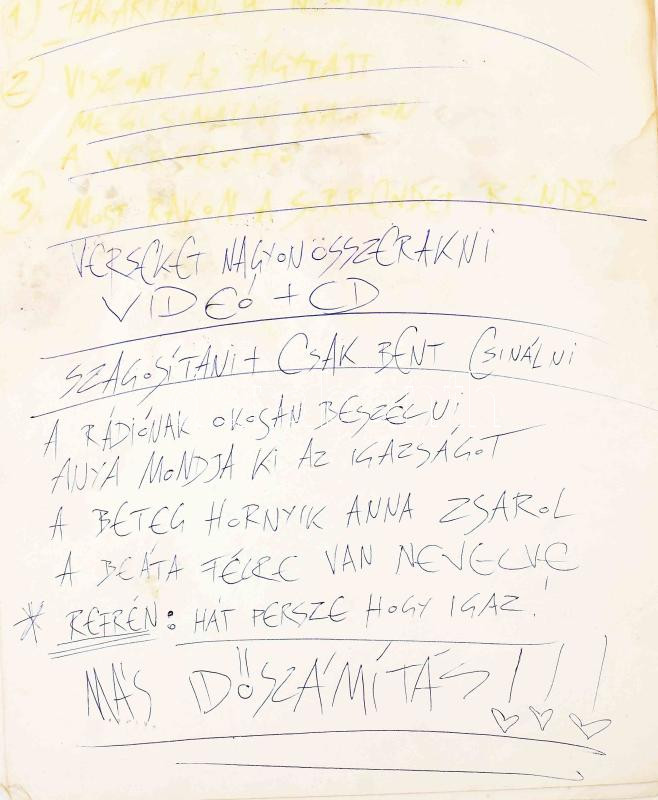 1) TAKARÍTANI A
2 VISZONT AZ ÁGYTÁTT
MEGCSINÁLNI NAGYON
A
3. MOST RAKOM A SORRENDET RENDBE
VERSEKET NAGYON ÖSSZERAKNI
VIDEÓ + CD
SZAGOSÍTANI + CSAK BENT CSINÁLNI
A RÁDIÓNAK OKOSAN BESZÉLNI
ANYA MONDJA KI AZ IGAZSÁGOT
A BETEG HORNYIK ANNA ZSAROL
A BEÁTA FÉLRE VAN NEVELVE
* REFRÉN: HÁT PERSZE HOGY IGAZ!
MÁS DŐSZÁMÍTÁS!!!